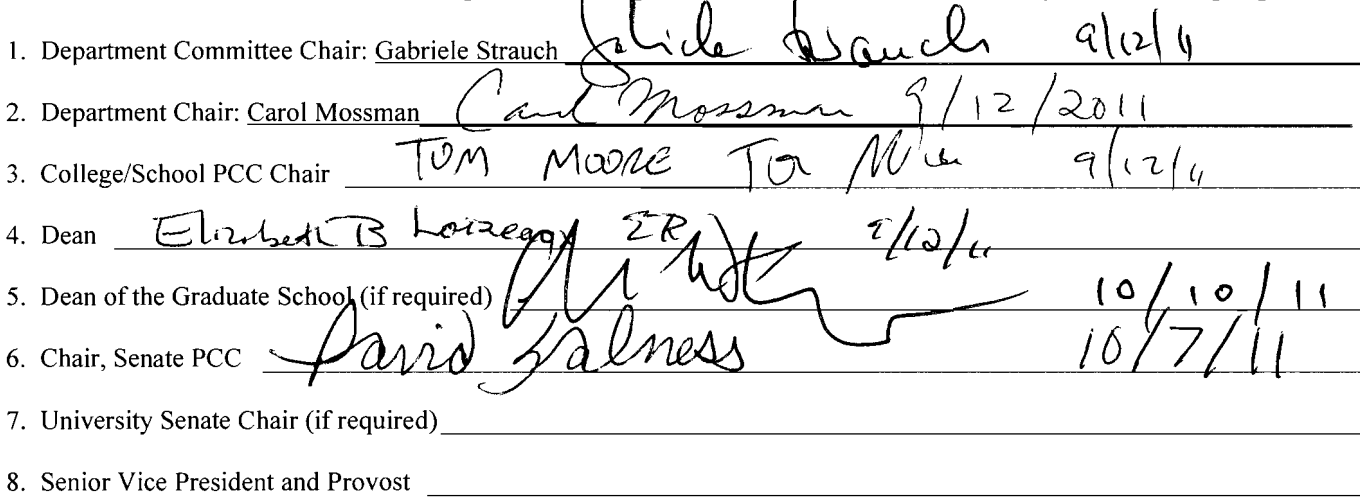 1. Department Committee Chair: Gabriele Strauch 9/12/11
2. Department Chair: Carol Mossman Carol Mossman 9/12/2011
3. College/School PCC Chair TOM MOORE 9/12/11
4. Dean Elizabeth B Loizeaux 9/12/11
5. Dean of the Graduate School (if required) 10/10/11
6. Chair, Senate PCC David Salness 10/7/11
7. University Senate Chair (if required)
8. Senior Vice President and Provost